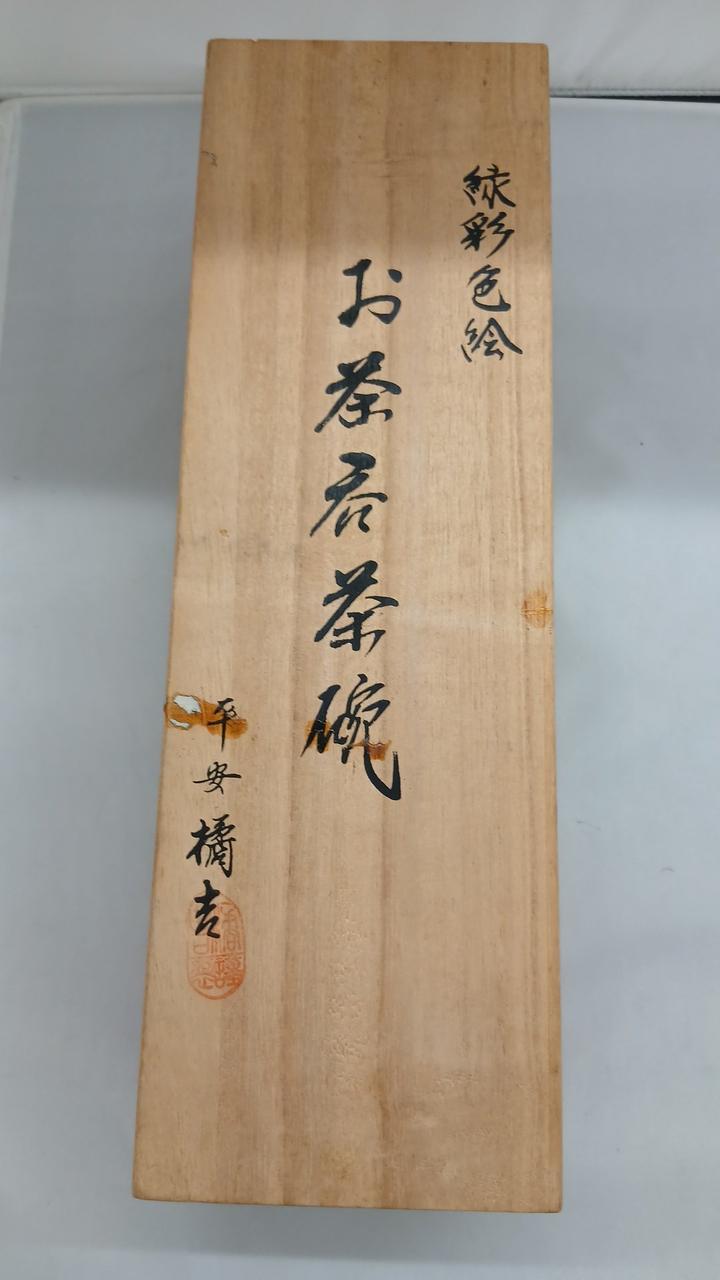 緑彩色絵
お茶呑茶碗
平安 橘吉